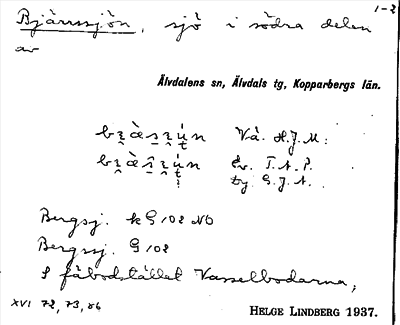 1-2
Bjärnsjön, sjö i södra delen
av
Älvdalens sn, Älvdals tg, Kopparbergs län.
Vå. H.J.M.
Ev. T.A.P.
Dy. G.J.A.
Bergsj. kG 102 NO
Bergssj. G 102
S fäbodstället Vasselbodarna,
XVI 72, 73, 86
HELGE LINDBERG 1937.